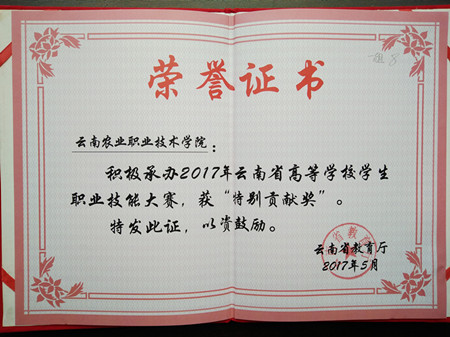 荣誉证书
云南农业职业技术学院：
积极承办2017年云南省高等学校学生
职业技能大赛，获“特别贡献奖”。
特发此证，以资鼓励。
云南省教育厅
2017年5月